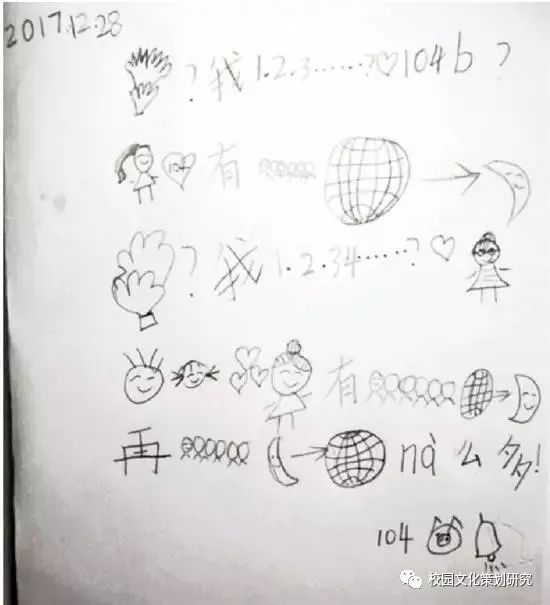 2017.12.28
? 我 1.2.3……? 104 b ?
104 有
? 我 1.2.34……?
有
再 nà 么 多!
104
校园文化策划研究